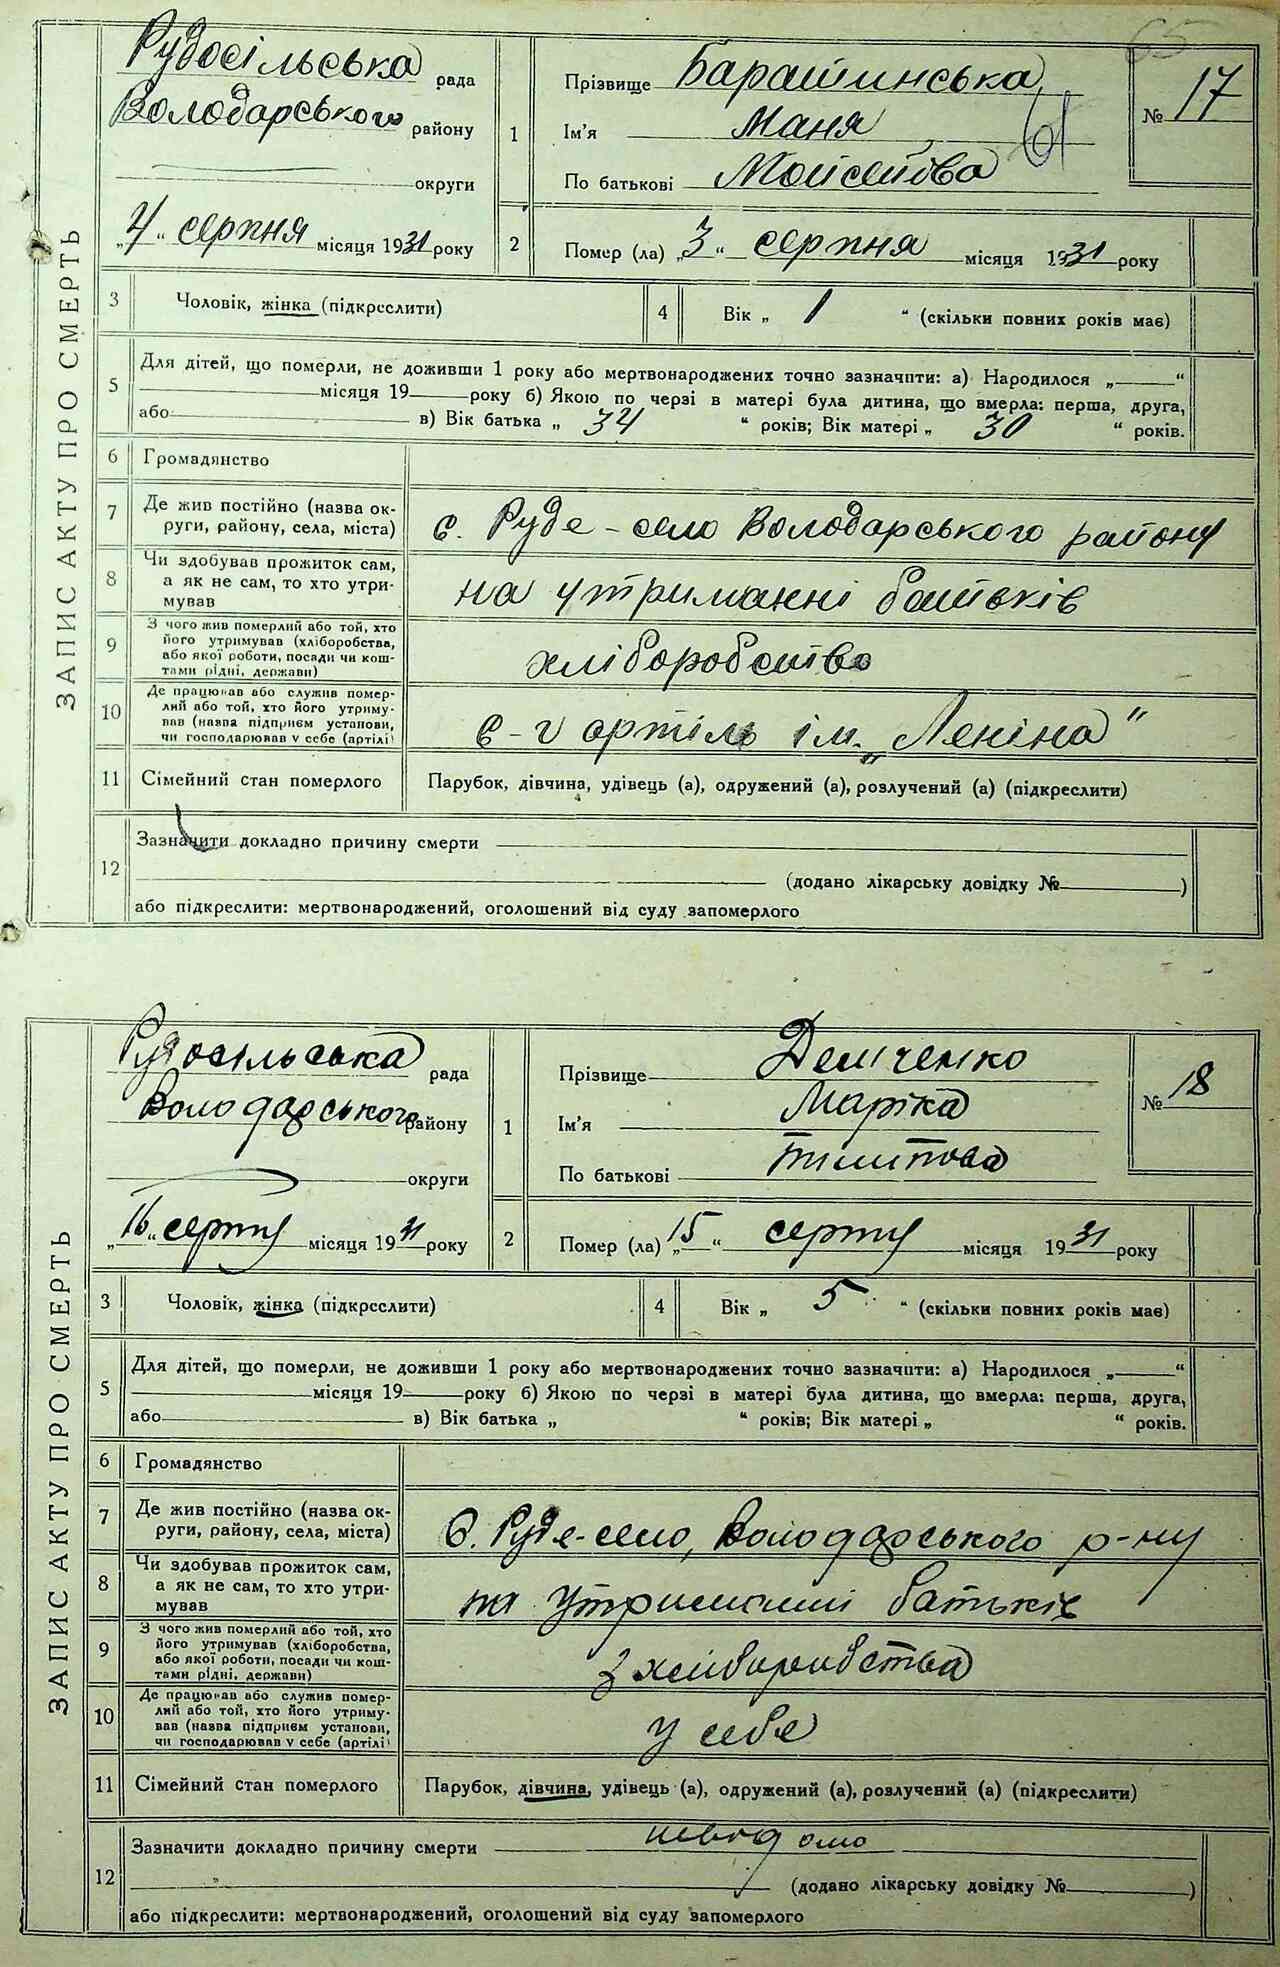 65
ЗАПИС АКТУ ПРО СМЕРТЬ
Рудосільська рада
Володарського району
округи
„4“ серпня місяця 1931 року
1
Прізвище Барашинська
Ім’я Маня
По батькові Мойсеїва
№ 17
2
Помер (ла) „3“ серпня місяця 1931 року
3 Чоловік, жінка (підкреслити)
4 Вік „ 1 “ (скільки повних років має)
5 Для дітей, що померли, не доживши 1 року або мертвонароджених точно зазначити: а) Народилося „ “
місяця 19 року б) Якою по черзі в матері була дитина, що вмерла: перша, друга,
або в) Вік батька „ 34 “ років; Вік матері „ 30 “ років.
6 Громадянство
7 Де жив постійно (назва ок-
руги, району, села, міста)
с. Руде-село Володарського району
8 Чи здобував прожиток сам,
а як не сам, то хто утри-
мував
на утриманні батьків
9 З чого жив померлий або той, хто
його утримував (хліборобства,
або якої роботи, посади чи кош-
тами рідні, держави)
хліборобство
10 Де працював або служив помер-
лий або той, хто його утриму-
вав (назва підприєм установи,
чи господарював у себе (артілі)
с-г артіль ім. „Леніна“
11 Сімейний стан померлого
Парубок, дівчина, удівець (а), одружений (а), розлучений (а) (підкреслити)
12 Зазначити докладно причину смерти
(додано лікарську довідку № )
або підкреслити: мертвонароджений, оголошений від суду запомерлого
ЗАПИС АКТУ ПРО СМЕРТЬ
Рудосільська рада
Володарського району
округи
„16“ серпня місяця 1931 року
1
Прізвище Демченко
Ім’я Маріка
По батькові Пилипова
№ 18
2
Помер (ла) „15“ серпня місяця 1931 року
3 Чоловік, жінка (підкреслити)
4 Вік „ 5 “ (скільки повних років має)
5 Для дітей, що померли, не доживши 1 року або мертвонароджених точно зазначити: а) Народилося „ “
місяця 19 року б) Якою по черзі в матері була дитина, що вмерла: перша, друга,
або в) Вік батька „ “ років; Вік матері „ “ років.
6 Громадянство
7 Де жив постійно (назва ок-
руги, району, села, міста)
с. Руде-село, Володарського р-ну
8 Чи здобував прожиток сам,
а як не сам, то хто утри-
мував
на утриманні батьків
9 З чого жив померлий або той, хто
його утримував (хліборобства,
або якої роботи, посади чи кош-
тами рідні, держави)
з хліборобства
10 Де працював або служив помер-
лий або той, хто його утриму-
вав (назва підприєм установи,
чи господарював у себе (артілі)
у себе
11 Сімейний стан померлого
Парубок, дівчина, удівець (а), одружений (а), розлучений (а) (підкреслити)
12 Зазначити докладно причину смерти невідомо
(додано лікарську довідку № )
або підкреслити: мертвонароджений, оголошений від суду запомерлого